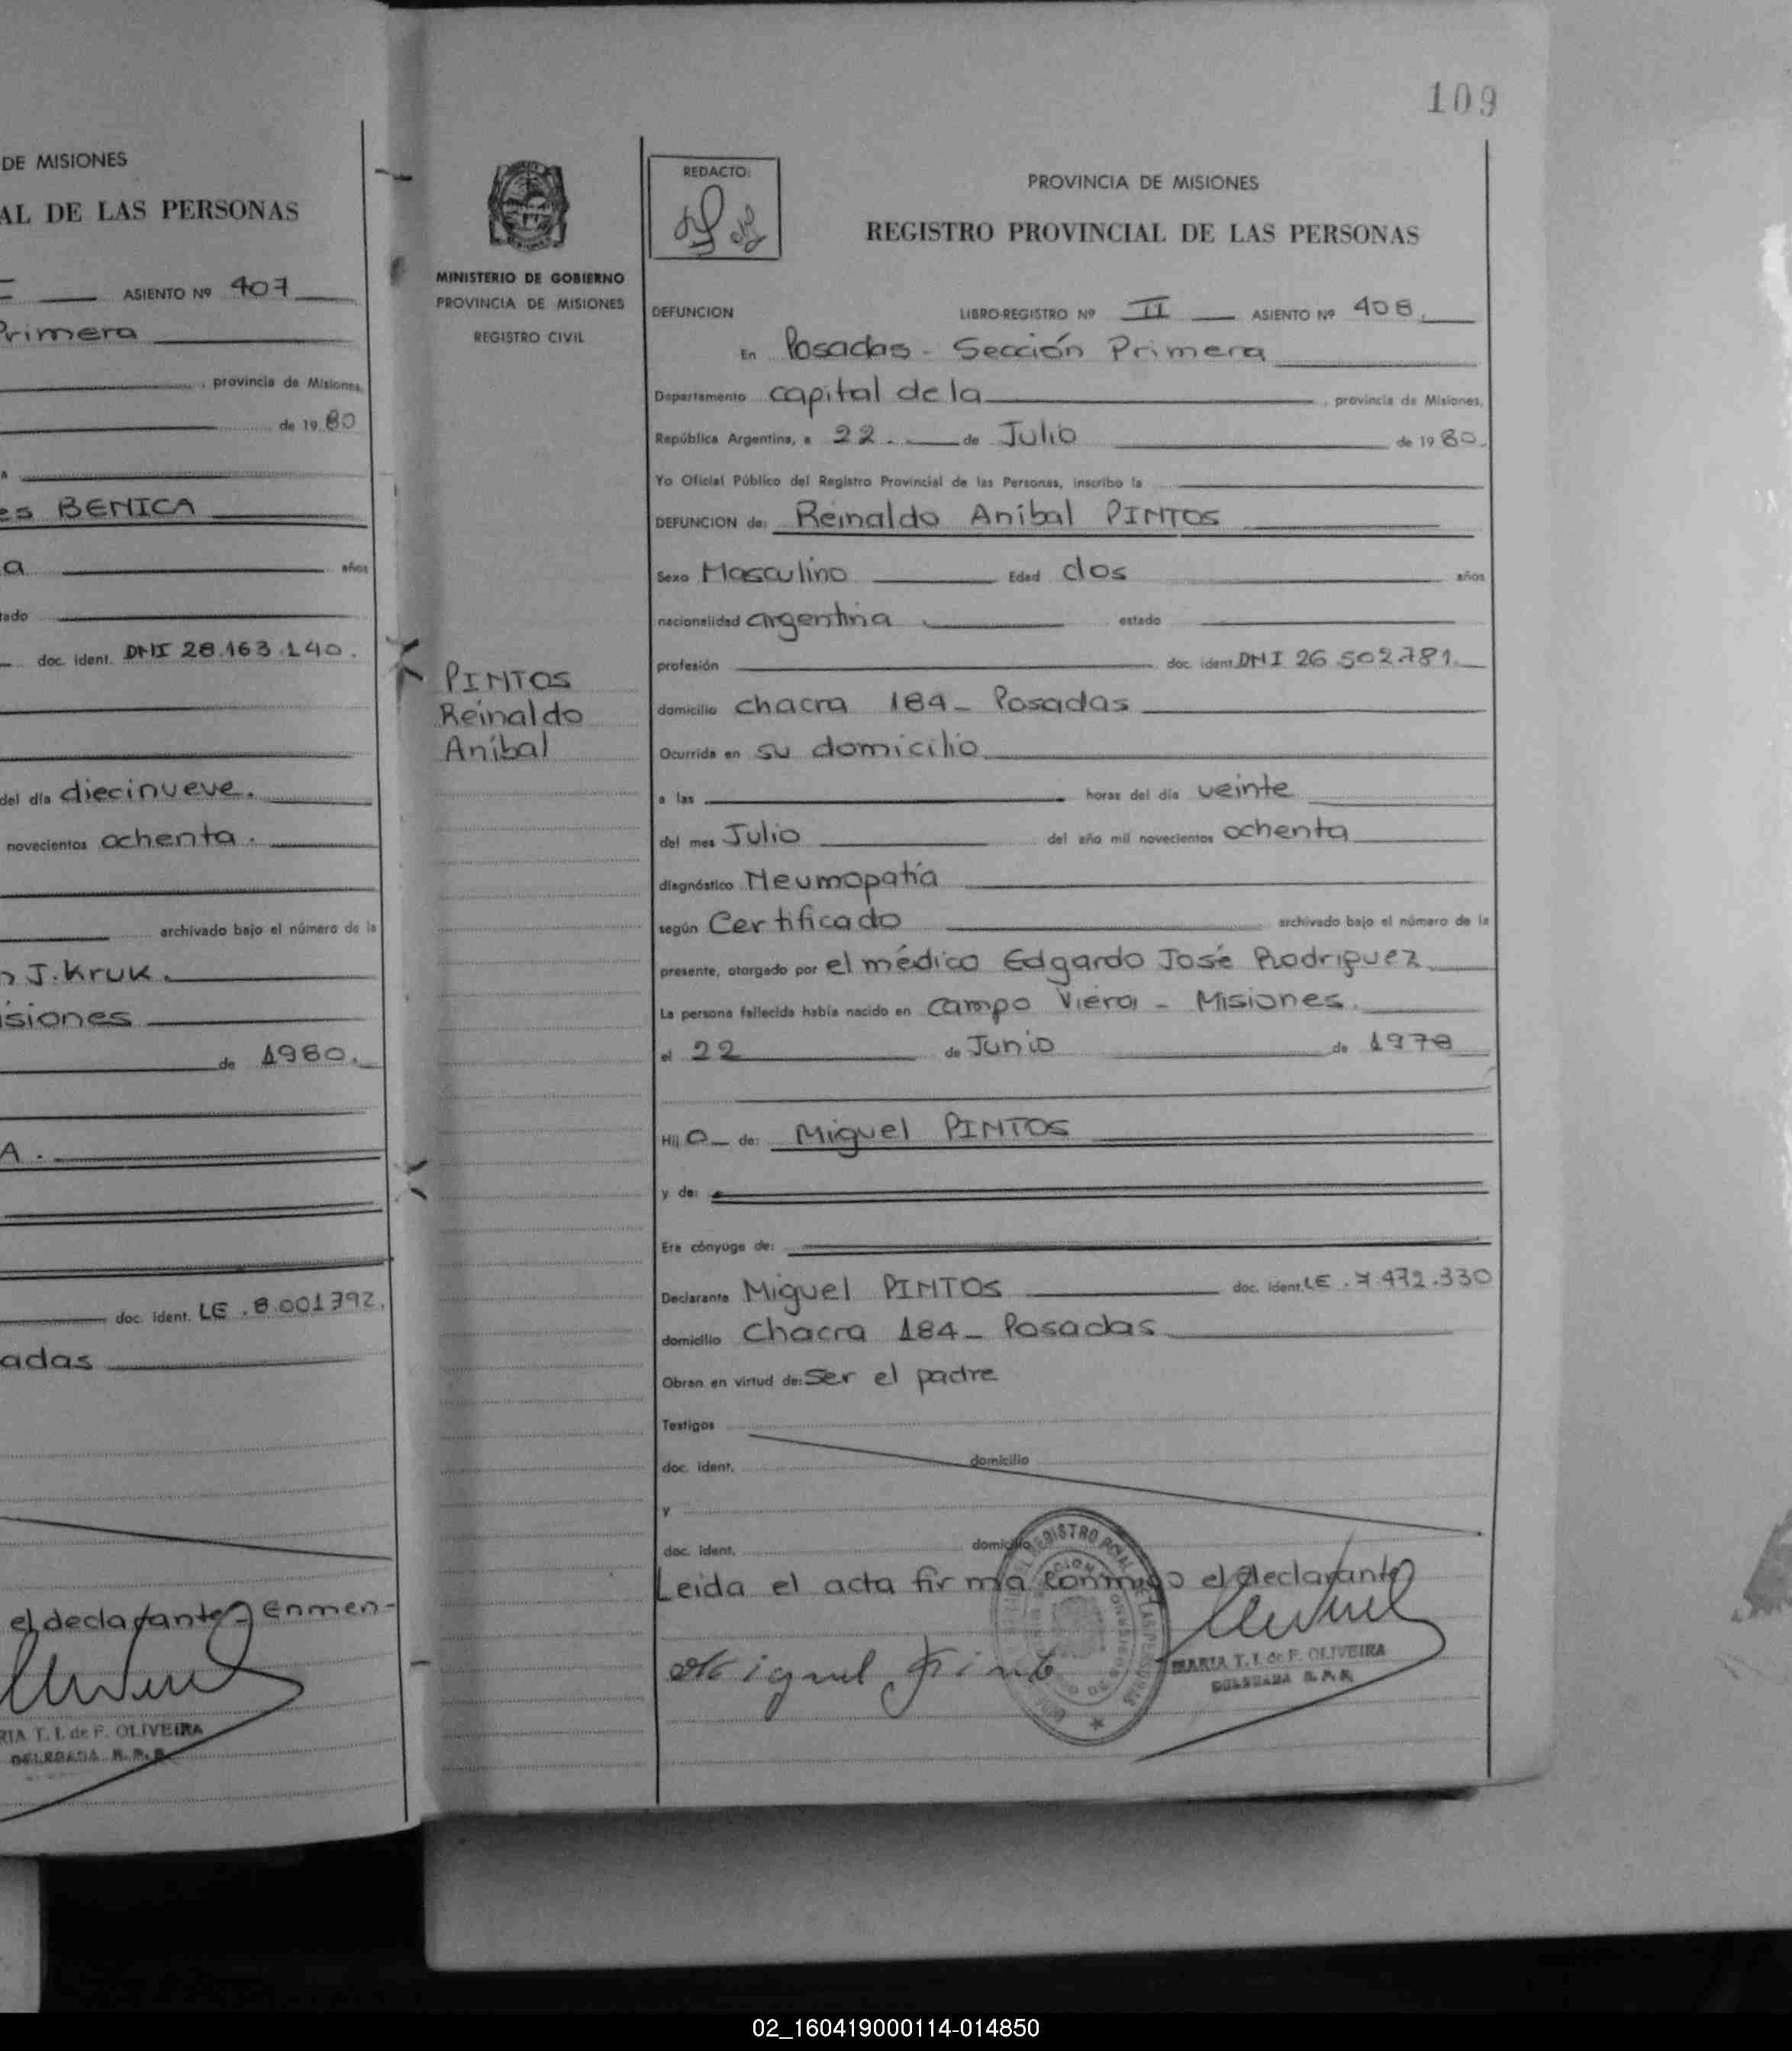 DE MISIONES
AL DE LAS PERSONAS
ASIENTO Nº 407
Primera
, provincia de Misiones,
de 1980
a
es BENICA
a años
tado
doc. ident. DNI 28.163.140.
del día diecinueve.
novecientos ochenta.
archivado bajo el número de la
n J. Kruk.
isiones
de 1980.
A.
doc. ident. LE. 8.001792.
adas
el declarante. Enmen-
RIA T. I. de F. OLIVEIRA
DELEGADA R. P. P.
109
MINISTERIO DE GOBIERNO
PROVINCIA DE MISIONES
REGISTRO CIVIL
PINTOS
Reinaldo
Aníbal
REDACTO:
PROVINCIA DE MISIONES
REGISTRO PROVINCIAL DE LAS PERSONAS
DEFUNCION LIBRO-REGISTRO Nº II ASIENTO Nº 408
En Posadas - Sección Primera
Departamento capital de la , provincia de Misiones,
República Argentina, a 22. de Julio de 1980.
Yo Oficial Público del Registro Provincial de las Personas, inscribo la
DEFUNCION de: Reinaldo Aníbal PINTOS
Sexo Masculino Edad dos años
nacionalidad argentina estado
profesión doc. ident. DNI 26.502.781.
domicilio chacra 184 - Posadas
Ocurrida en su domicilio
a las horas del día veinte
del mes Julio del año mil novecientos ochenta
diagnóstico Neumopatía
según Certificado archivado bajo el número de la
presente, otorgado por el médico Edgardo José Rodriguez
La persona fallecida había nacido en Campo Viera - Misiones.
el 22 de Junio de 1978
Hijo de: Miguel PINTOS
y de:
Era cónyuge de:
Declarante Miguel PINTOS doc. ident. LE. 7.472.330
domicilio Chacra 184 - Posadas
Obran en virtud de: Ser el padre
Testigos
doc. ident. domicilio
y
doc. ident. domicilio
Leida el acta firma conmigo el declarante
Miguel Pinto
MARIA T. I. de F. OLIVEIRA
DELEGADA R. P. P.
02_160419000114-014850